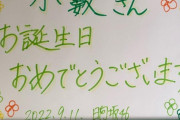 小數さん
お誕生日
おめでとうございます
2022.9.11.